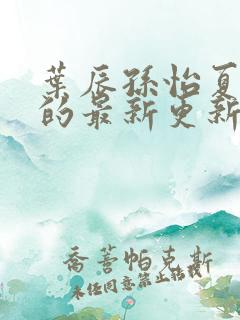 葉辰孫怡夏
的最新更新
喬著帕克斯
未任同意禁止轉載